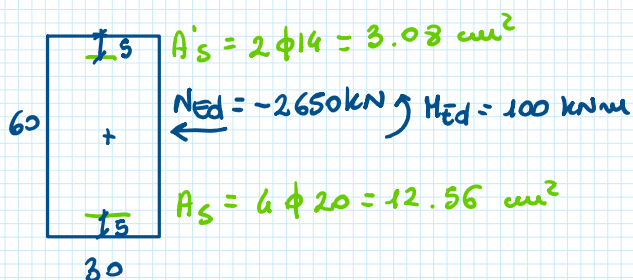 5
A's = 2ϕ14 = 3.08 cm²
60
NEd = -2650kN MEd = 100 kNm
+
As = 4ϕ20 = 12.56 cm²
5
30